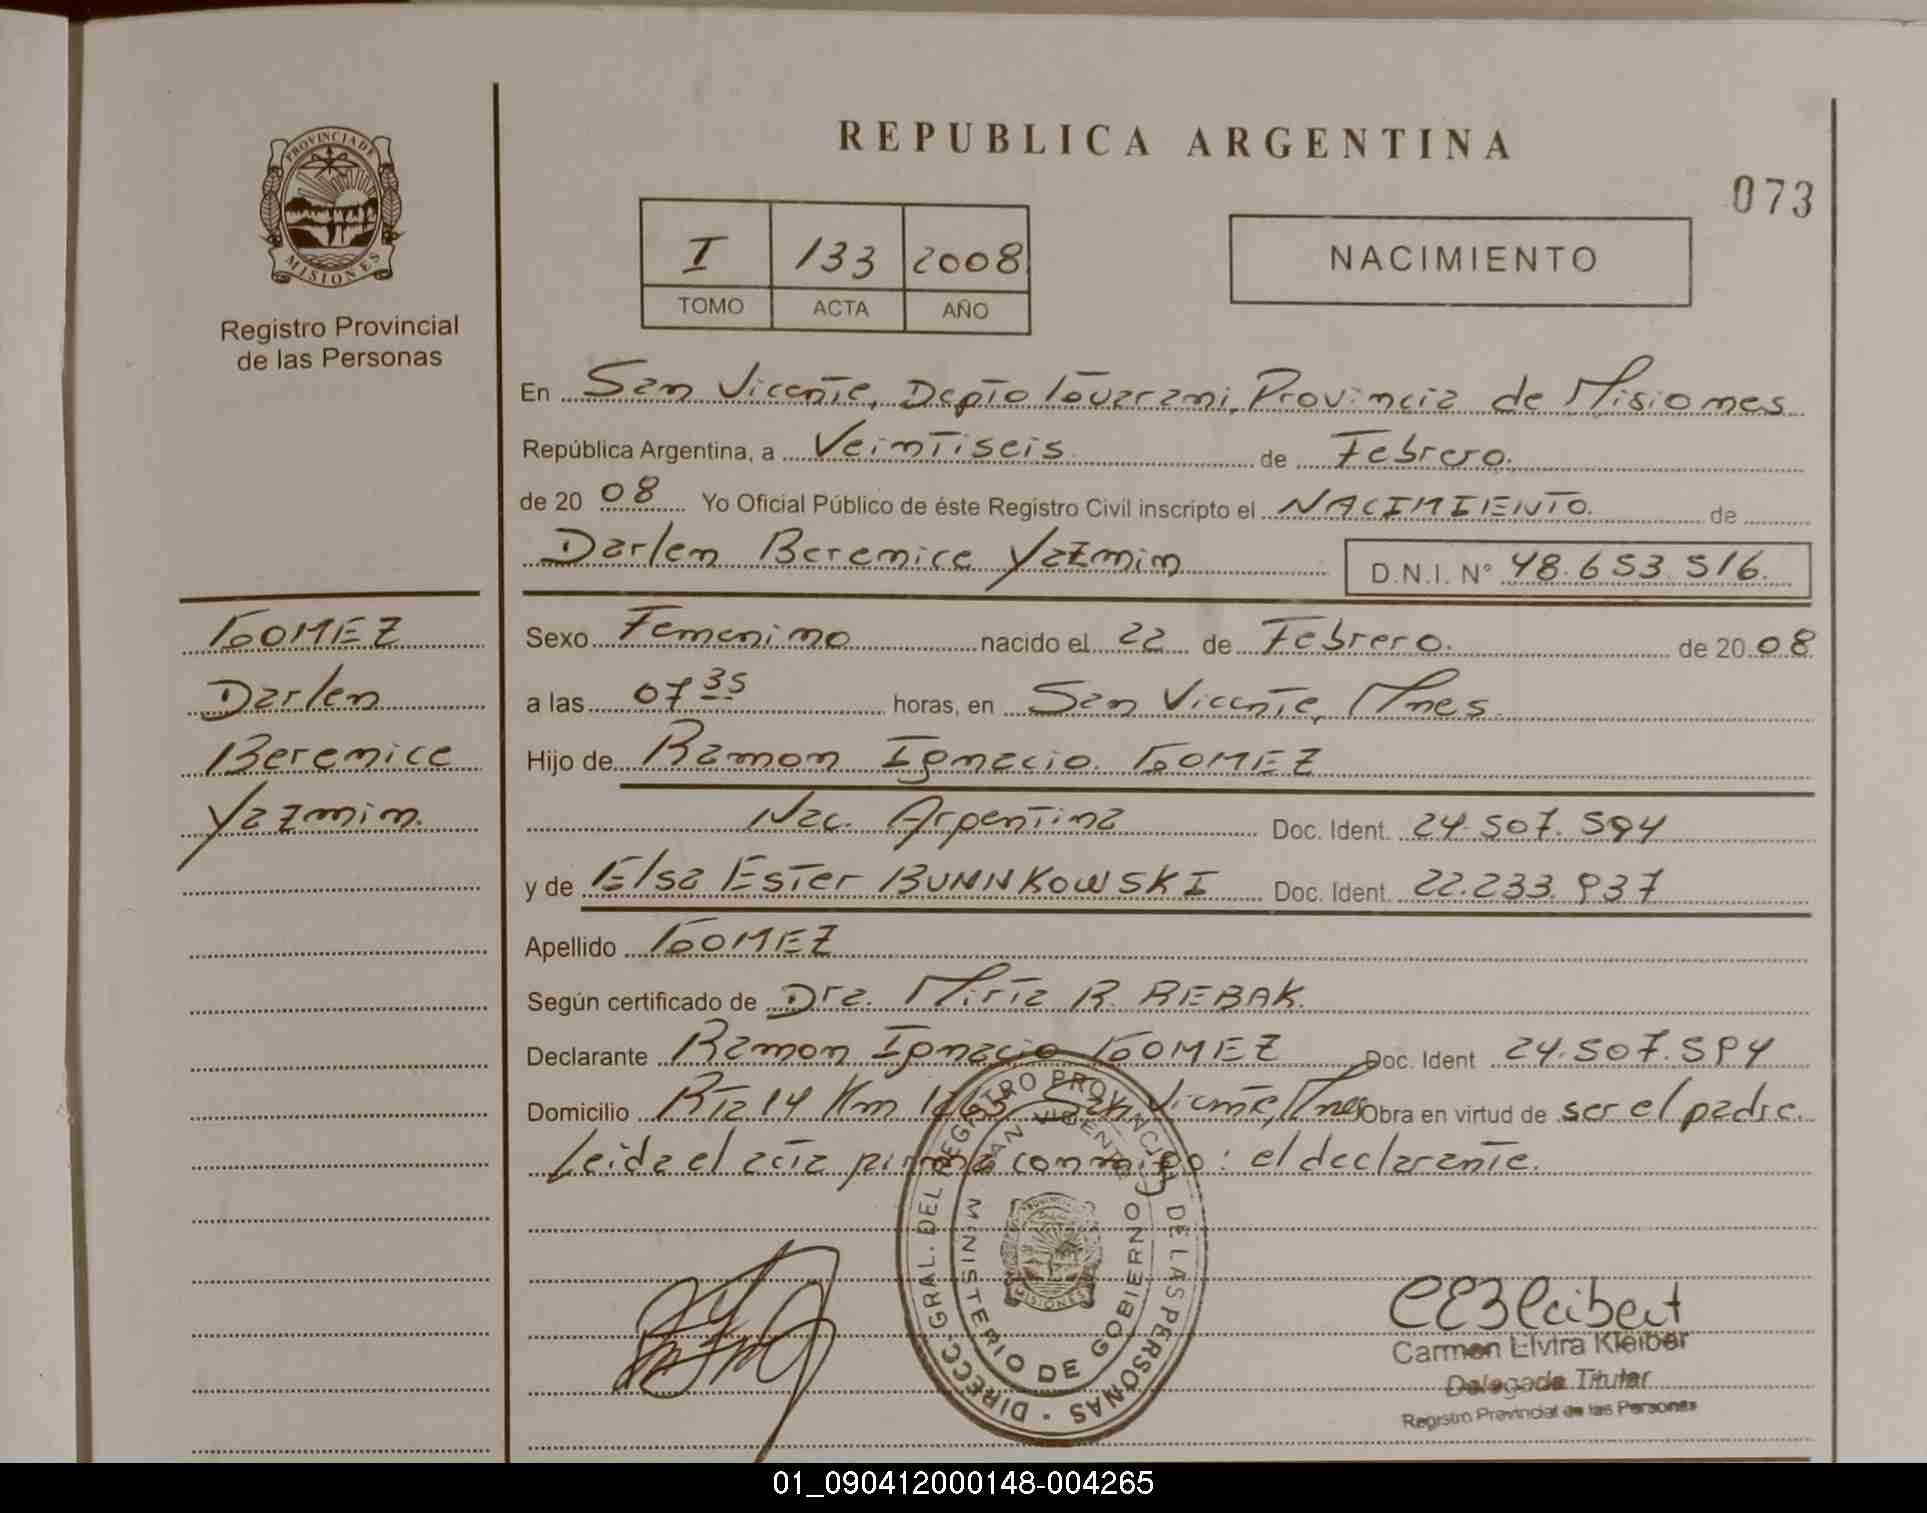 REPUBLICA ARGENTINA
073
PROVINCIA DE
MISIONES
Registro Provincial
de las Personas
I 133 2008
TOMO ACTA AÑO
NACIMIENTO
En San Vicente, Depto Guarani, Provincia de Misiones
República Argentina, a Veintiseis de Febrero.
de 20 08 Yo Oficial Público de éste Registro Civil inscripto el NACIMIENTO. de
Darlen Berenice Yazmin D.N.I. N° 48.653.516.
GOMEZ
Darlen
Berenice
Yazmin.
Sexo Femenino nacido el 22 de Febrero. de 20 08
a las 07 35 horas, en San Vicente, Mnes.
Hijo de Ramon Ignacio GOMEZ
Nac. Argentina Doc. Ident. 24.507.594
y de Elsa Ester BUNNKOWSKI Doc. Ident. 22.233.937
Apellido GOMEZ
Según certificado de Dra. Mirta R. REBAK.
Declarante Ramon Ignacio GOMEZ Doc. Ident 24.507.594
Domicilio Rta 14 Km San Vicente, Mnes Obra en virtud de ser el padre.
Leida el acta firma conmigo: el declarante.
DIRECC. GRAL. DEL REGISTRO PROVINCIAL DE LAS PERSONAS
SAN VICENTE
MINISTERIO DE GOBIERNO
MISIONES
Carmen Elvira Kleiber
Delegada Titular
Registro Provincial de las Personas
01_090412000148-004265